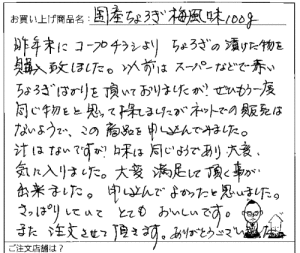 お買い上げ商品名: 国産ちょろぎ梅風味100g
昨年末にコープチラシより ちょろぎの漬けた物を
購入致しました。以前はスーパーなどで赤い
ちょろぎばかりを頂いておりましたが、ぜひもう一度
同じ物をと思って探しましたがネットでの販売は
ないようで、この商品を申し込んでみました。
汁はないですが、味は同じようであり大変、
気に入りました。大変満足して頂く事が
出来ました。申し込んでよかったと思いました。
さっぱりしていて とてもおいしいです。
また注文させて頂きます。ありがとうござい
ご注文店舗は?